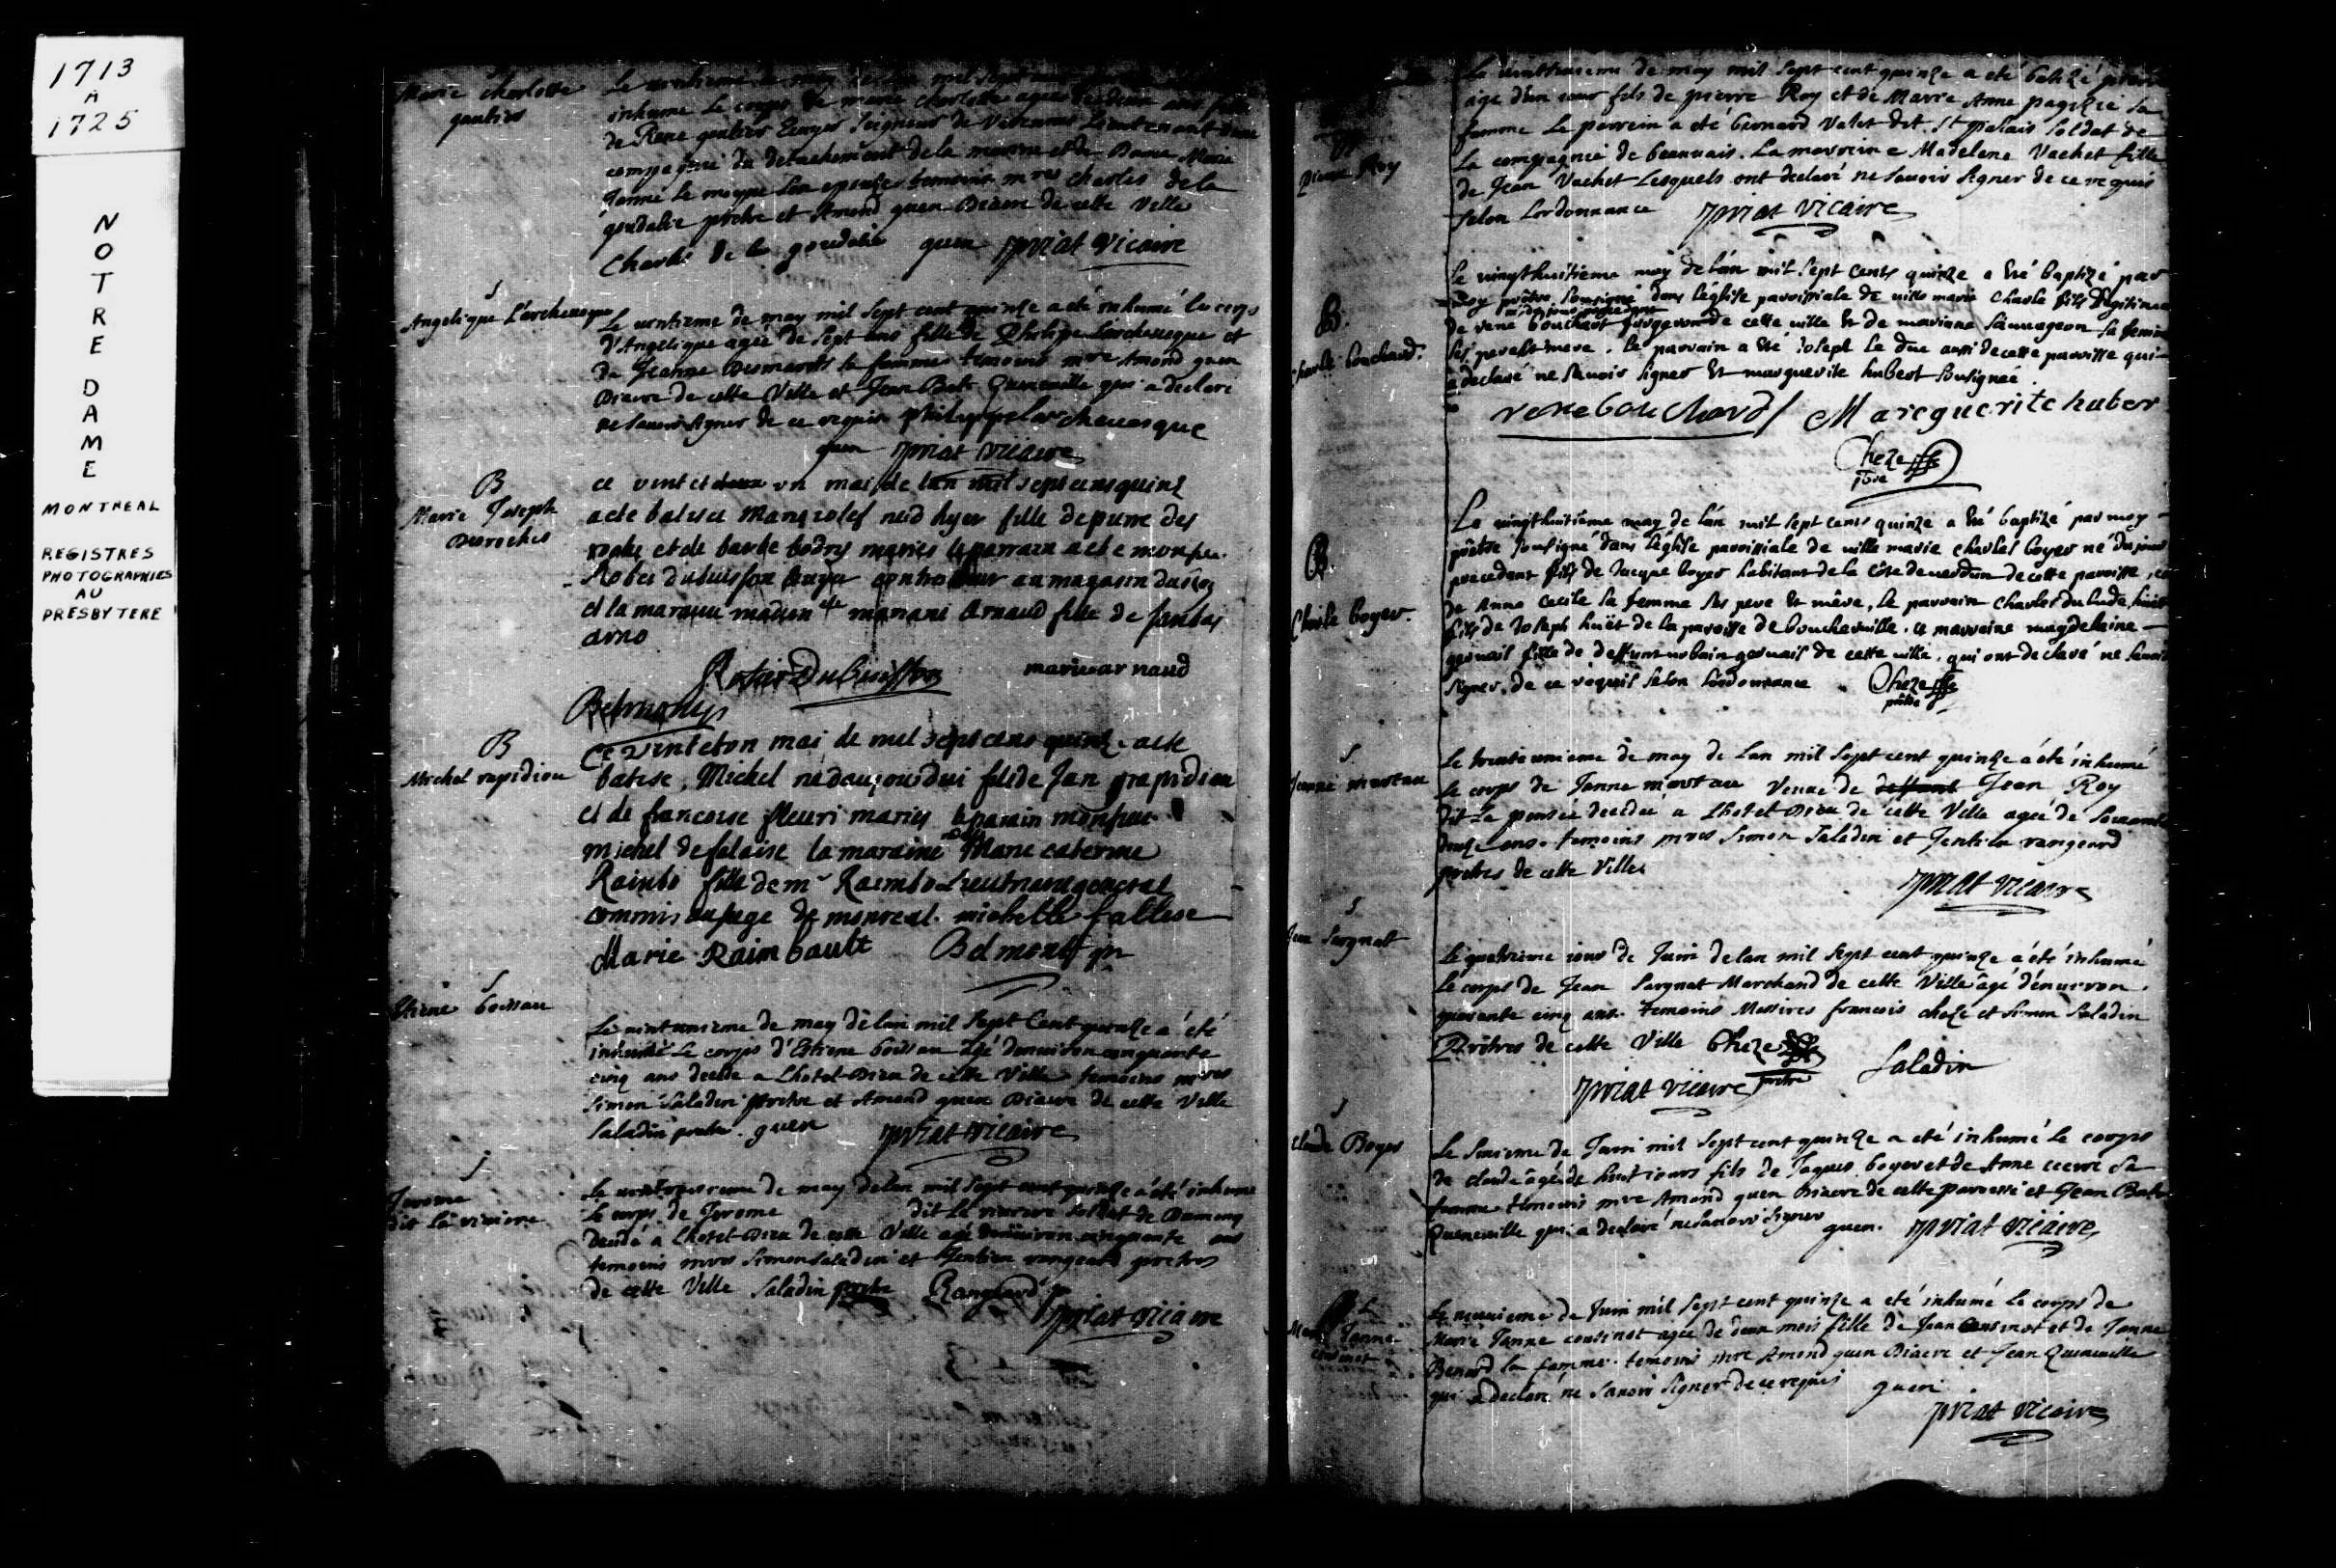 1713
A
1725
NOTRE DAME
MONTREAL
REGISTRES
PHOTOGRAPHIES
AU
PRESBYTERE
Marie Charlotte
gautier
inhumé Le corps de marie charlotte agée de deux ans fille
de Rene gautier Ecuyer Seigneur de Varennes Lieutenant d'une
compagnie du detachement de la marine et de Dame Marie
Janne Le moyne son epouse temoins mres charles de la
goudalie prêtre et Amond guen Diacre de cette Ville
Charles de la goudalie guen priat vicaire
S
Angelique Larcheuesque
Le uentieme de may mil Sept cent quinze a été inhumé le corps
d'Angelique agée de Sept ans fille de Philipe Larcheuesque et
de Jeanne Desmarets sa femme temoins mre Amond guen
Diacre de cette Ville et Jean Bate Queneuille qui a declaré
ne sauoir signer de ce requis philippe larcheuesque
guen priat vicaire
B
Marie Joseph
Deroches
ce vint et deux un mai de lan mil sept cens quinz
a ete batisee Marijosef née hyer fille de pierre des
roches et de barbe bodry mariés le parrain a ete monsieur
Rober dubuisson ecuyer controlleur au magasin du Roy
et la maraine madem elle mariane Arnaud fille de
arno
Dubuisson marie arnaud
Belmont p
B
Michel rapidiou
Ce vint et un mai de mil sept cens quinz a ete
batise, Michel né daujourdui fils de Jan grapidiou
et de francoise fleuri mariés le parain monsieur
michel defalaise la maraine Marie caterine
Raimbo fille de mr Raimbo Lieutenant general
commis au siege de monreal. michelle fallese
Marie Raimbault Belmont p
S
Etiene boissau
Le uint unieme de may de lan mil Sept Cent quinze a été
inhumé Le corps d'Estiene boissau agé denuiron cinquante
cinq ans decedé a Lhotel-Dieu de cette Ville temoins mres
Simon Saladin prêtre et Amond guen Diacre de cette Ville
Saladin prêtre. guen priat vicaire
S
Jerome
dit la riuiere
Le uint troisieme de may de lan mil Sept cent quinze a été inhumé
Le corps de Jerome dit La riuiere Soldat de
decedé a Lhotel-Dieu de cette Ville agé denuiron cinquante ans
temoins mres Simon Saladin et Gentien rangeard prêtres
de cette Ville Saladin prêtre Rangeard p
priat vicaire
B
pierre Roy
Le uint troisieme de may mil Sept cent quinze a été batizé pierre
agé d'un iour fils de pierre Roy et de Marie Anne pagezie sa
femme Le parrein a été bernard Valet dit St palais Soldat de
La compagnie de beauuais. La marreine Madelene Vachet fille
de Jean Vachet Lesquels ont declaré ne sauoir signer de ce requis
selon Lordonnance priat vicaire
B.
Charle bouchard.
Le vingthuitieme may de l'an mil sept cents quinze a été baptizé par
moy prêtre sousigné dans l'église paroissiale de ville marie charle fils legitime
de rené bouchart forgeron de cette ville et de marianne sauuageon sa femme
ses pere et mere. le parrain a été Joseph le duc aussi de cette paroisse qui
a declaré ne sauoir signer et marguerite hubert sousignée.
rene bouchard Marcguerite huber
Cheze
ptre
B.
Charle boyer.
Le vingthuitième may de l'an mil sept cents quinze a été baptizé par moy
prêtre sousigné dans l'église paroissiale de ville marie charles boyer né du jour
precedent fils de Jacque boyer habitant de la côte de uerdun de cette paroisse, et
de Anne Cecile sa femme ses pere et mère, le parrain Charles dulude huët
fils de Joseph huët de la paroisse de boucheruille. la marraine magdelaine
geruais fille de deffunt urbain geruais de cette ville, qui ont declaré ne sauoir
signer, de ce requis selon l'ordonnance. Cheze
prêtre
S
Jeanne marteau
Le trente unieme de may de Lan mil Sept cent quinze a été inhumé
Le corps de Janne martau Veuue de deffunt Jean Roy
dit La pensée decedée a Lhotel-Dieu de cette Ville agée de soixante
douze ans. temoins mres Simon Saladin et Gentien rangeard
prêtres de cette Ville
priat vicaire
S
Jean Sargnat
Le quatrieme iour de Juin de lan mil Sept cent quinze a été inhumé
Le corps de Jean Sargnat Marchand de cette Ville âgé d'enuiron
quarante cinq ans. temoins Messires francois cheze et Simon Saladin
Prêtres de cette Ville Cheze prêtre Saladin
priat vicaire
S
claude Boyer
Le sixieme de Juin mil Sept cent quinze a été inhumé Le corps
de claude âgé de huit iours fils de Jaques boyer et de Anne cecire sa
femme temoins mre Amond guen Diacre de cette paroisse et Jean Bate
Queneuille qui a declaré ne sauoir signer guen. priat vicaire
S
Marie Janne
cousinot
Le neuuieme de Juin mil Sept cent quinze a été inhumé Le corps de
Marie Janne cousinot agée de deux mois fille de Jean cousinot et de Janne
Benard sa femme. temoins mre Amond guen Diacre et Jean Queneuille
qui a declaré ne sauoir signer de ce requis guen
priat vicaire